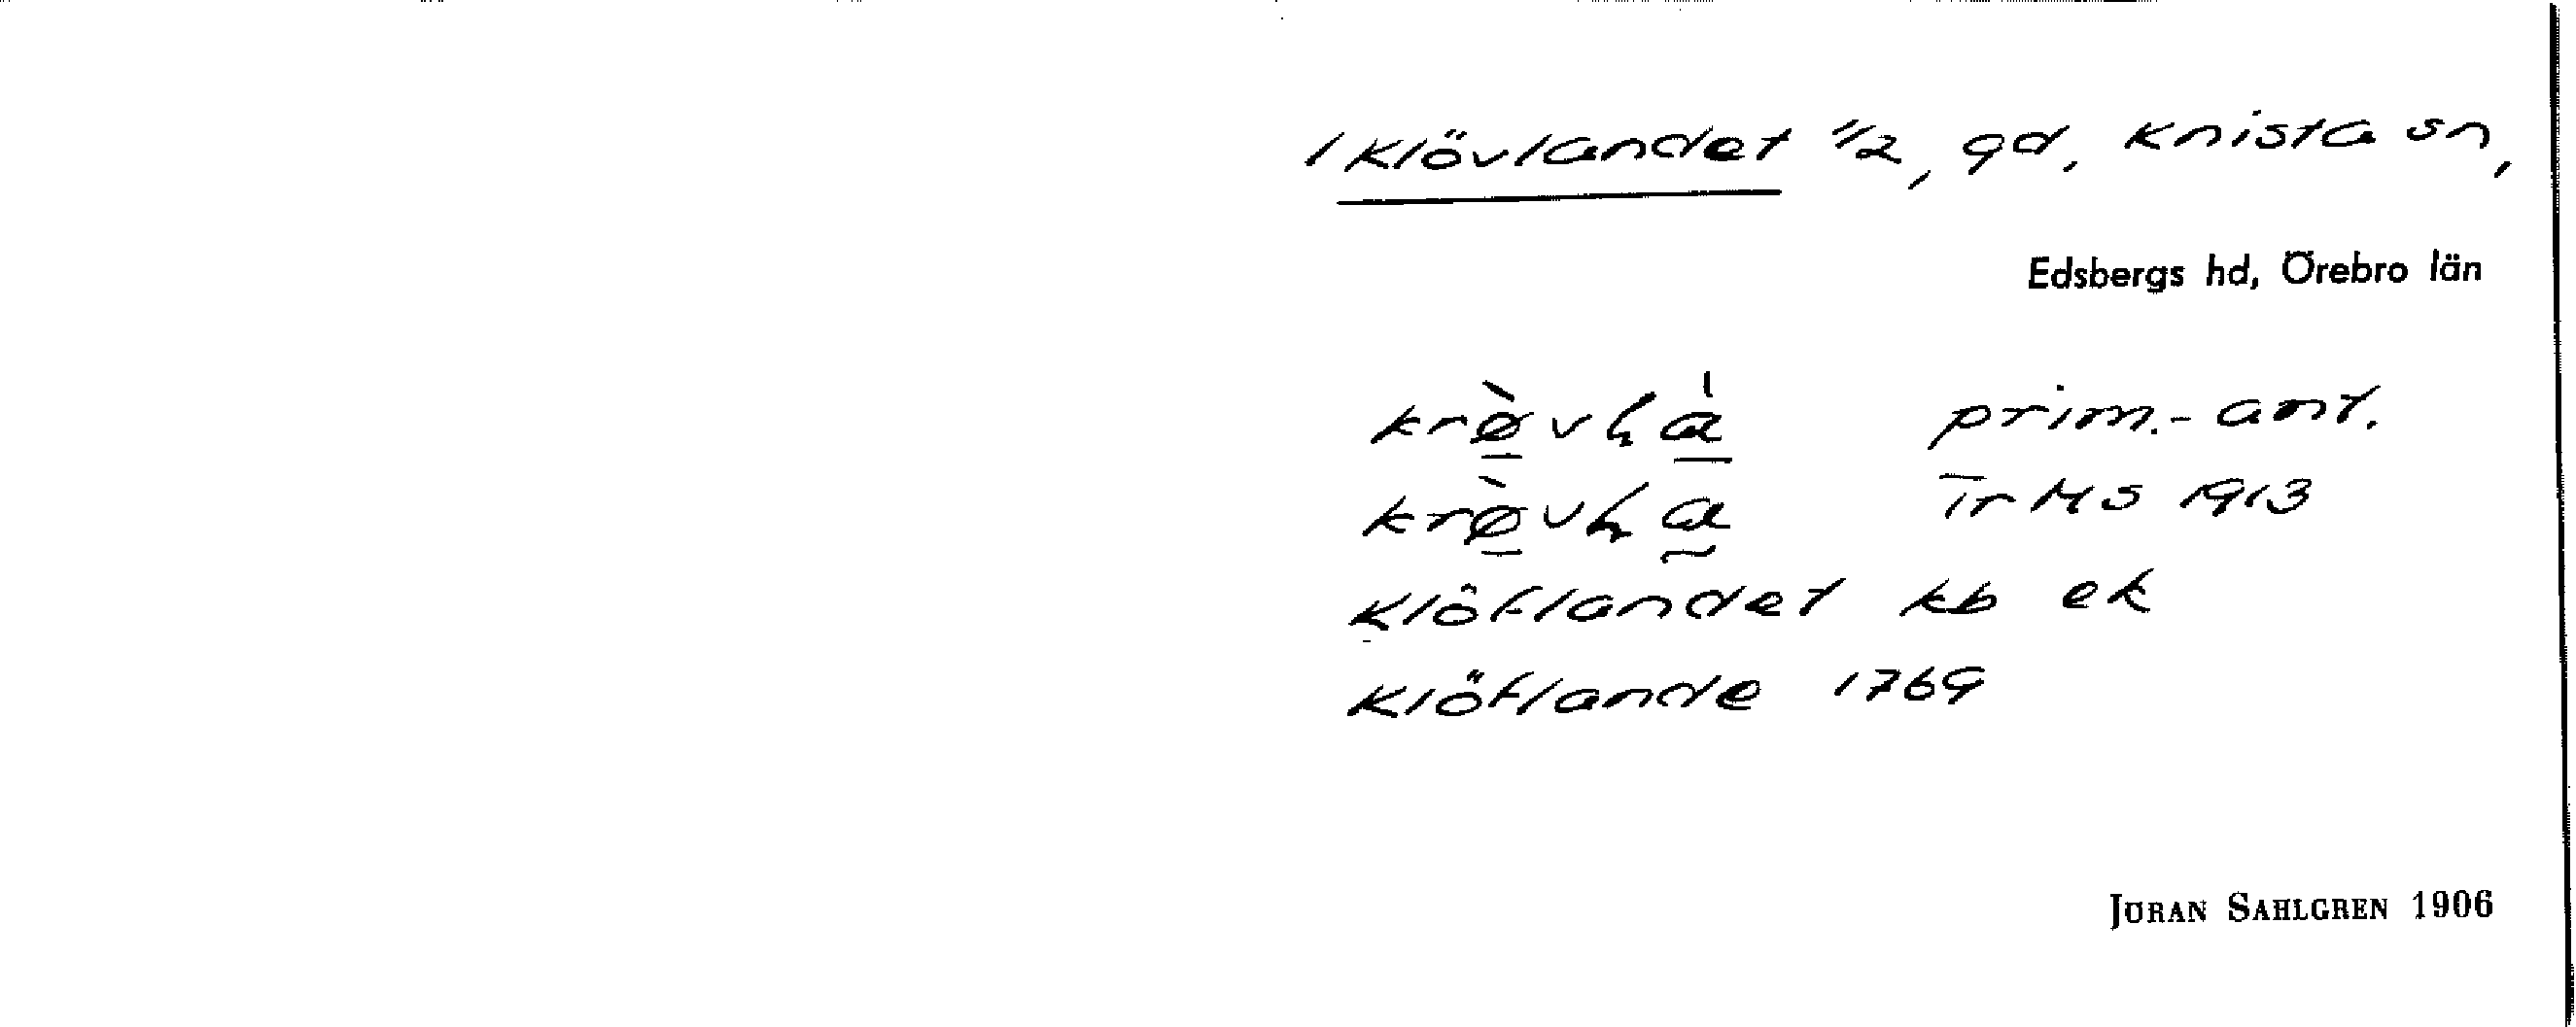 1 Klövlandet 1/2, gd, Knista sn,
Edsbergs hd, Örebro län
prim.-ant.
Tr MS 1913
Klöflandet kb ek
Klöflande 1769
JÖRAN SAHLGREN 1906